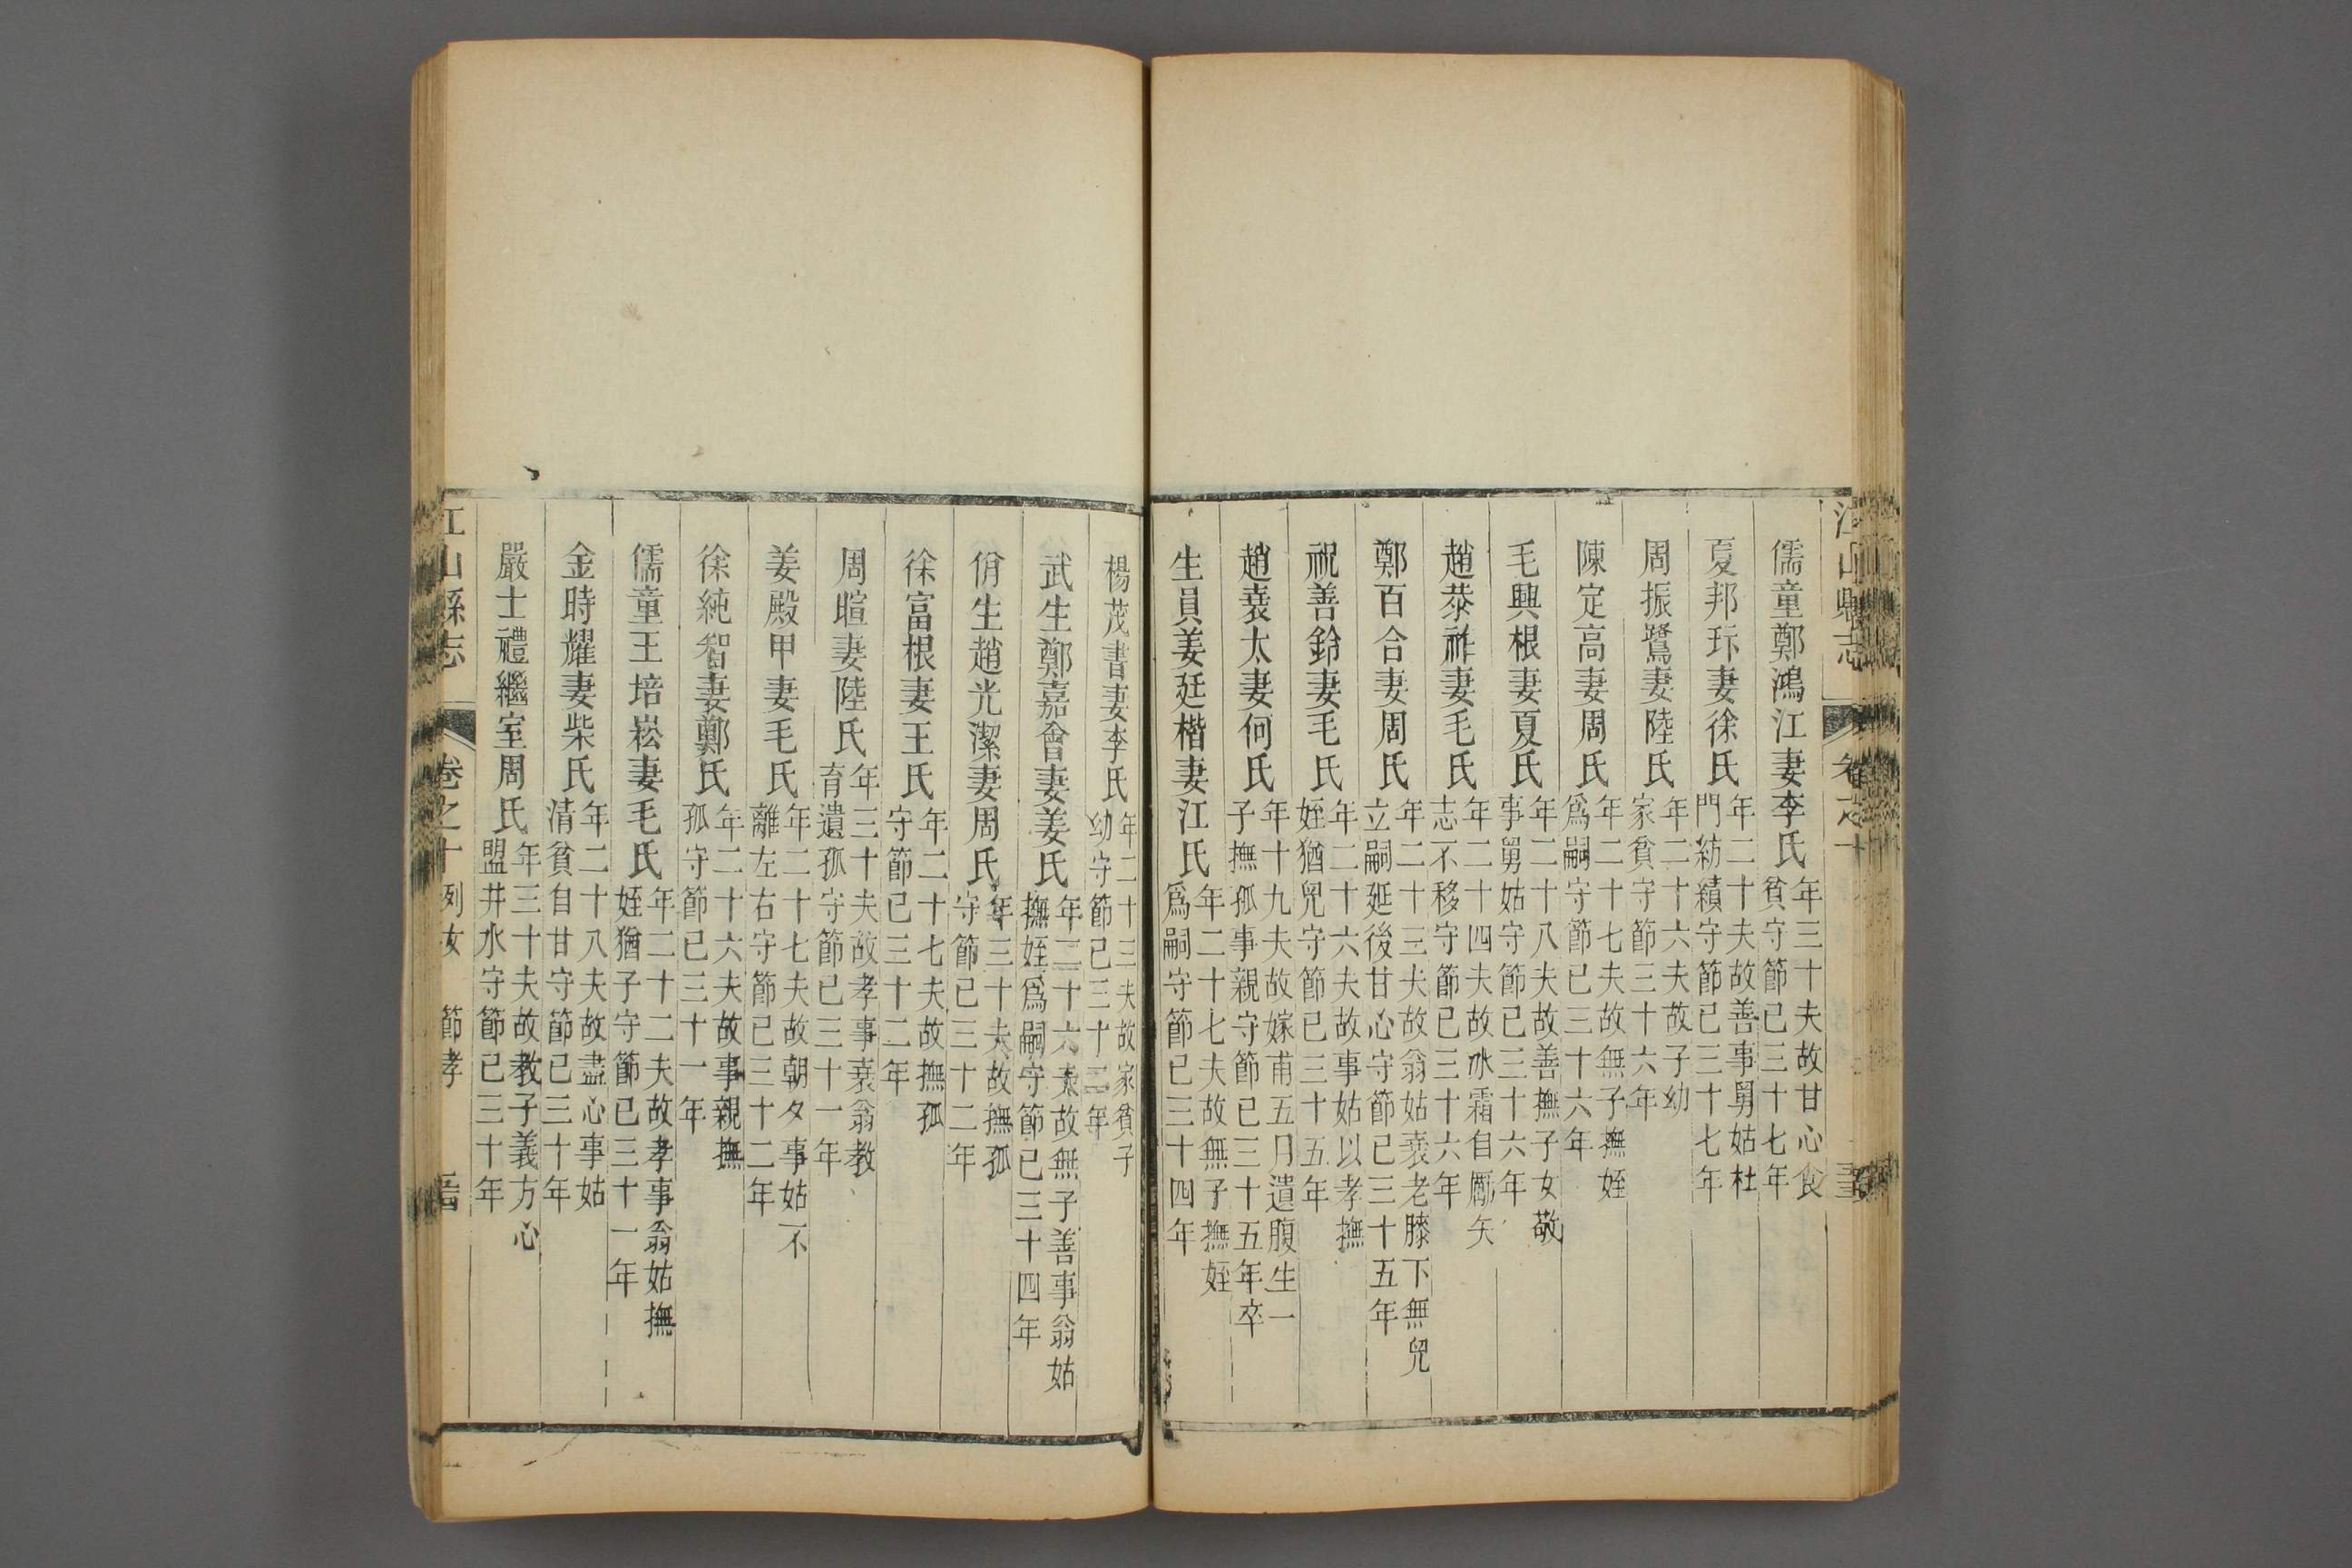 江山縣志 卷之十
儒童鄭鴻江妻李氏 年三十夫故甘心食貧守節已三十七年
夏邦珎妻徐氏 年二十夫故善事舅姑杜門紡績守節已三十七年
周振鷺妻陸氏 年二十六夫故子幼家貧守節三十六年
陳定高妻周氏 年二十七夫故無子撫姪爲嗣守節已三十六年
毛興根妻夏氏 年二十八夫故善撫子女敬事舅姑守節已三十六年
趙恭祚妻毛氏 年二十四夫故冰霜自勵矢志不移守節已三十六年
鄭百合妻周氏 年二十三夫故翁姑衰老膝下無兒立嗣延後甘心守節已三十五年
祝善鈴妻毛氏 年二十六夫故事姑以孝撫姪猶兒守節已三十五年
趙太妻何氏 年十九夫故嫁甫五月遺腹生一子撫孤事親守節已三十五年卒
生員姜廷楷妻江氏 年二十七夫故無子撫姪爲嗣守節已三十四年
楊茂書妻李氏 年二十三夫故家貧子幼守節已三十三年
武生鄭嘉會妻姜氏 年二十六夫故無子善事翁姑撫姪爲嗣守節已三十四年
佾生趙光潔妻周氏 年三十夫故撫孤守節已三十二年
徐富根妻王氏 年二十七夫故撫孤守節已三十二年
周暄妻陸氏 年三十夫故孝事衰翁教育遺孤守節已三十一年
姜殿甲妻毛氏 年二十七夫故朝夕事姑不離左右守節已三十二年
徐純智妻鄭氏 年二十六夫故事親撫孤守節已三十一年
儒童王培崧妻毛氏 年二十二夫故孝事翁姑撫姪猶子守節已三十一年
金時耀妻柴氏 年二十八夫故盡心事姑清貧自甘守節已三十年
嚴士禮繼室周氏 年三十夫故教子義方心盟井水守節已三十年
江山縣志 卷之十 列女 節孝